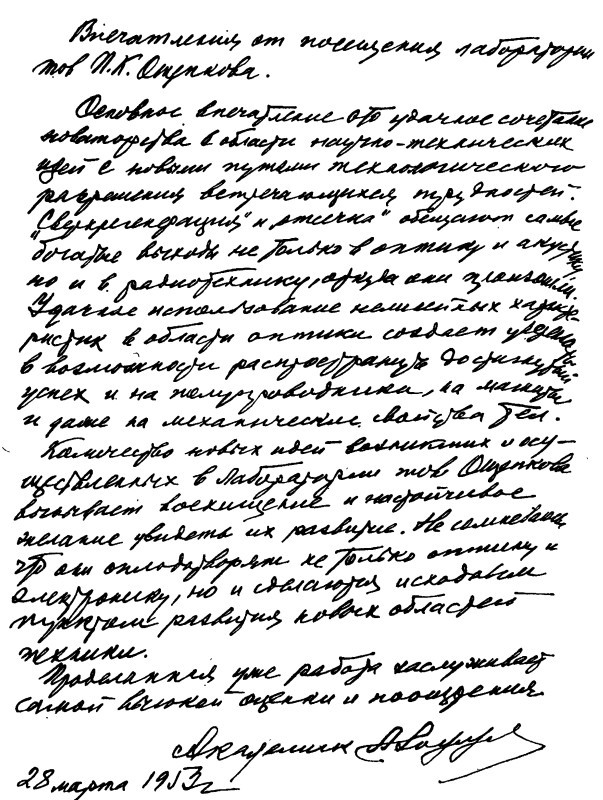 Впечатления от посещения лаборатории
тов П.К. Ощепкова.
Основное впечатление это удачное сочетание
новаторства в области научно-технических
идей с новыми путями технологического
разрешения встречающихся трудностей.
"Сверхрегенерация" и "отсечка" обещают самые
богатые выходы не только в оптику и акустику,
но и в радиотехнику, откуда они произошли.
Удачное использование нелинейных характе-
ристик в области оптики создает уверенность
в возможности распространить достигнутый
успех и на полупроводники, на магниты
и даже на механические свойства тел.
Количество новых идей возникших и осу-
ществленных в Лаборатории тов Ощепкова
вызывает восхищение и настойчивое
желание увидеть их развитие. Не сомневаюсь,
что они оплодотворят не только оптику и
электронику, но и сделаются исходным
пунктом развития новых областей
техники.
Проделанная уже работа заслуживает
самой высокой оценки и поощрения
Академик
28 марта 1953 г